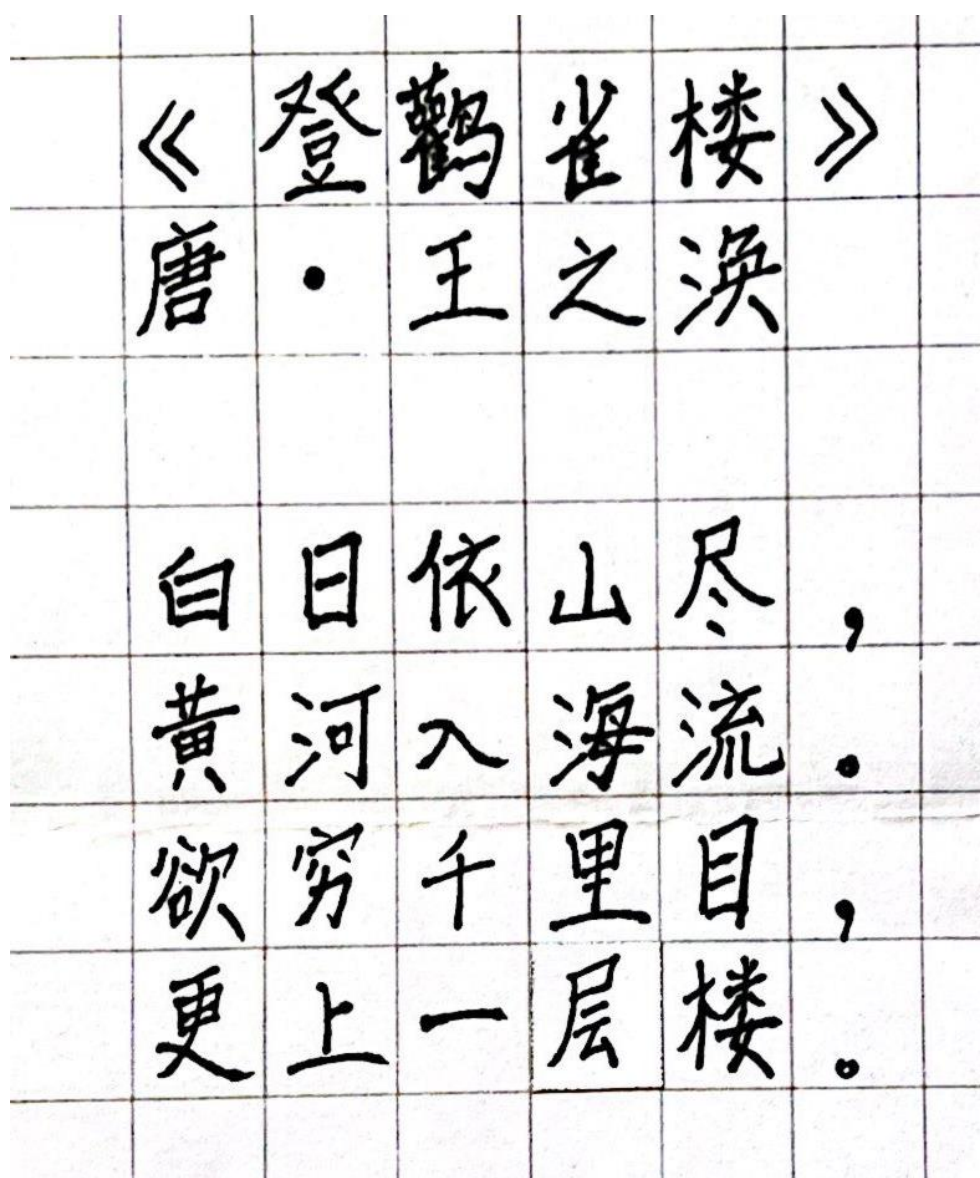 《登鹳雀楼》
唐·王之涣
白日依山尽，
黄河入海流。
欲穷千里目，
更上一层楼。